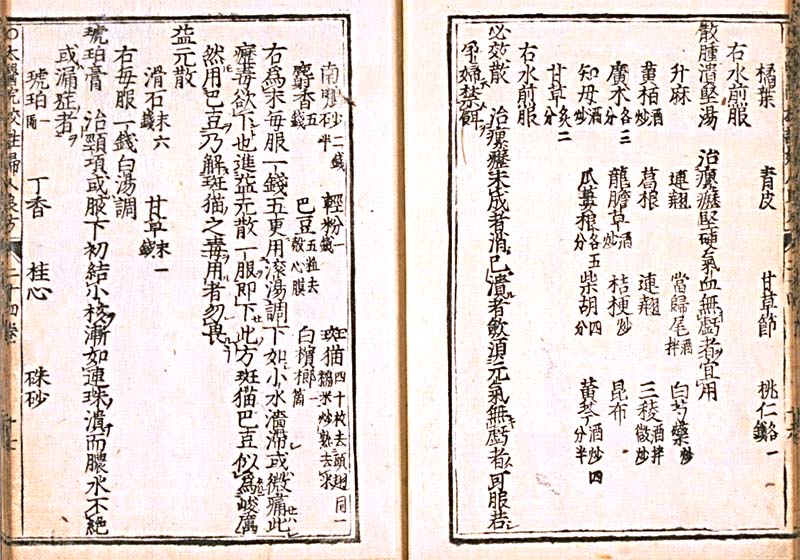 橘葉 青皮 甘草節 桃仁各一錢
右水煎服
散腫潰堅湯 治瘰癧堅硬氣血無虧者宜用
升麻 連翹 當歸尾酒拌 白芍藥炒
黄栢酒炒 葛根 連翹 三稜酒拌微炒
廣朮酒炒各三分 龍膽草酒炒 桔梗炒 昆布
知母酒炒 瓜蔞根各五分 柴胡四分 黄芩酒炒四分半
甘草炙二分
右水煎服
必效散 治瘰癧未成者消已潰者斂須元氣無虧者可服若
孕婦禁餌
南鵬砂二錢半 輕粉一錢 斑猫四十枚去頭翅同糯米炒熟去米
麝香五錢 巴豆五粒去殼心膜 白檳榔一箇
右為末每服一錢五更用滾湯調下如小水濇滯或微痛此
癧毒欲下也進益元散一服即下此方斑猫巴豆似為峻厲
然用巴豆乃解斑猫之毒用者勿畏
益元散
滑石末六錢 甘草末一錢
右每服一錢白湯調
琥珀膏 治頸項或腋下初結小核漸如連珠潰而膿水不絶
或漏症者
琥珀一兩 丁香 桂心 硃砂
太醫院校註婦人良方 二十四卷 十七